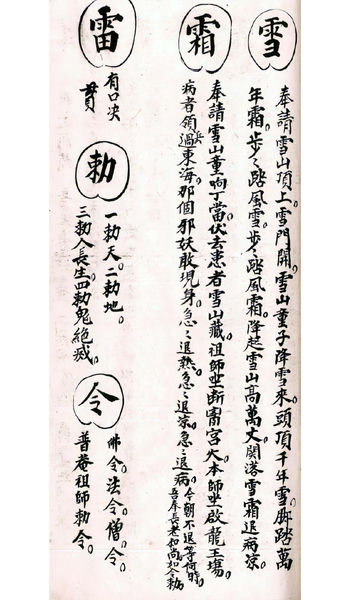 雪
奉請雪山頂上。雪門開。雪山童子降雪來。頭頂千年雪。脚踏萬
年霜。步々踏風雪。步々踏風霜。降起雪山高萬丈。開落雪霜退病涼。
霜
奉請雪山童
當。伏去患者雪山藏。祖師
本師
啟龍王
病者領過東海。那個邪妖敢現身。急々退熱。急々退凉。急々退病。今朝不退等何時。
吾奉長老和尚如令勅
雷
有口决
勅
一勅天。二勅地。
三勅人長生。四勅鬼絶滅。
令
佛令。法令。僧令。
普庵祖師勅令。